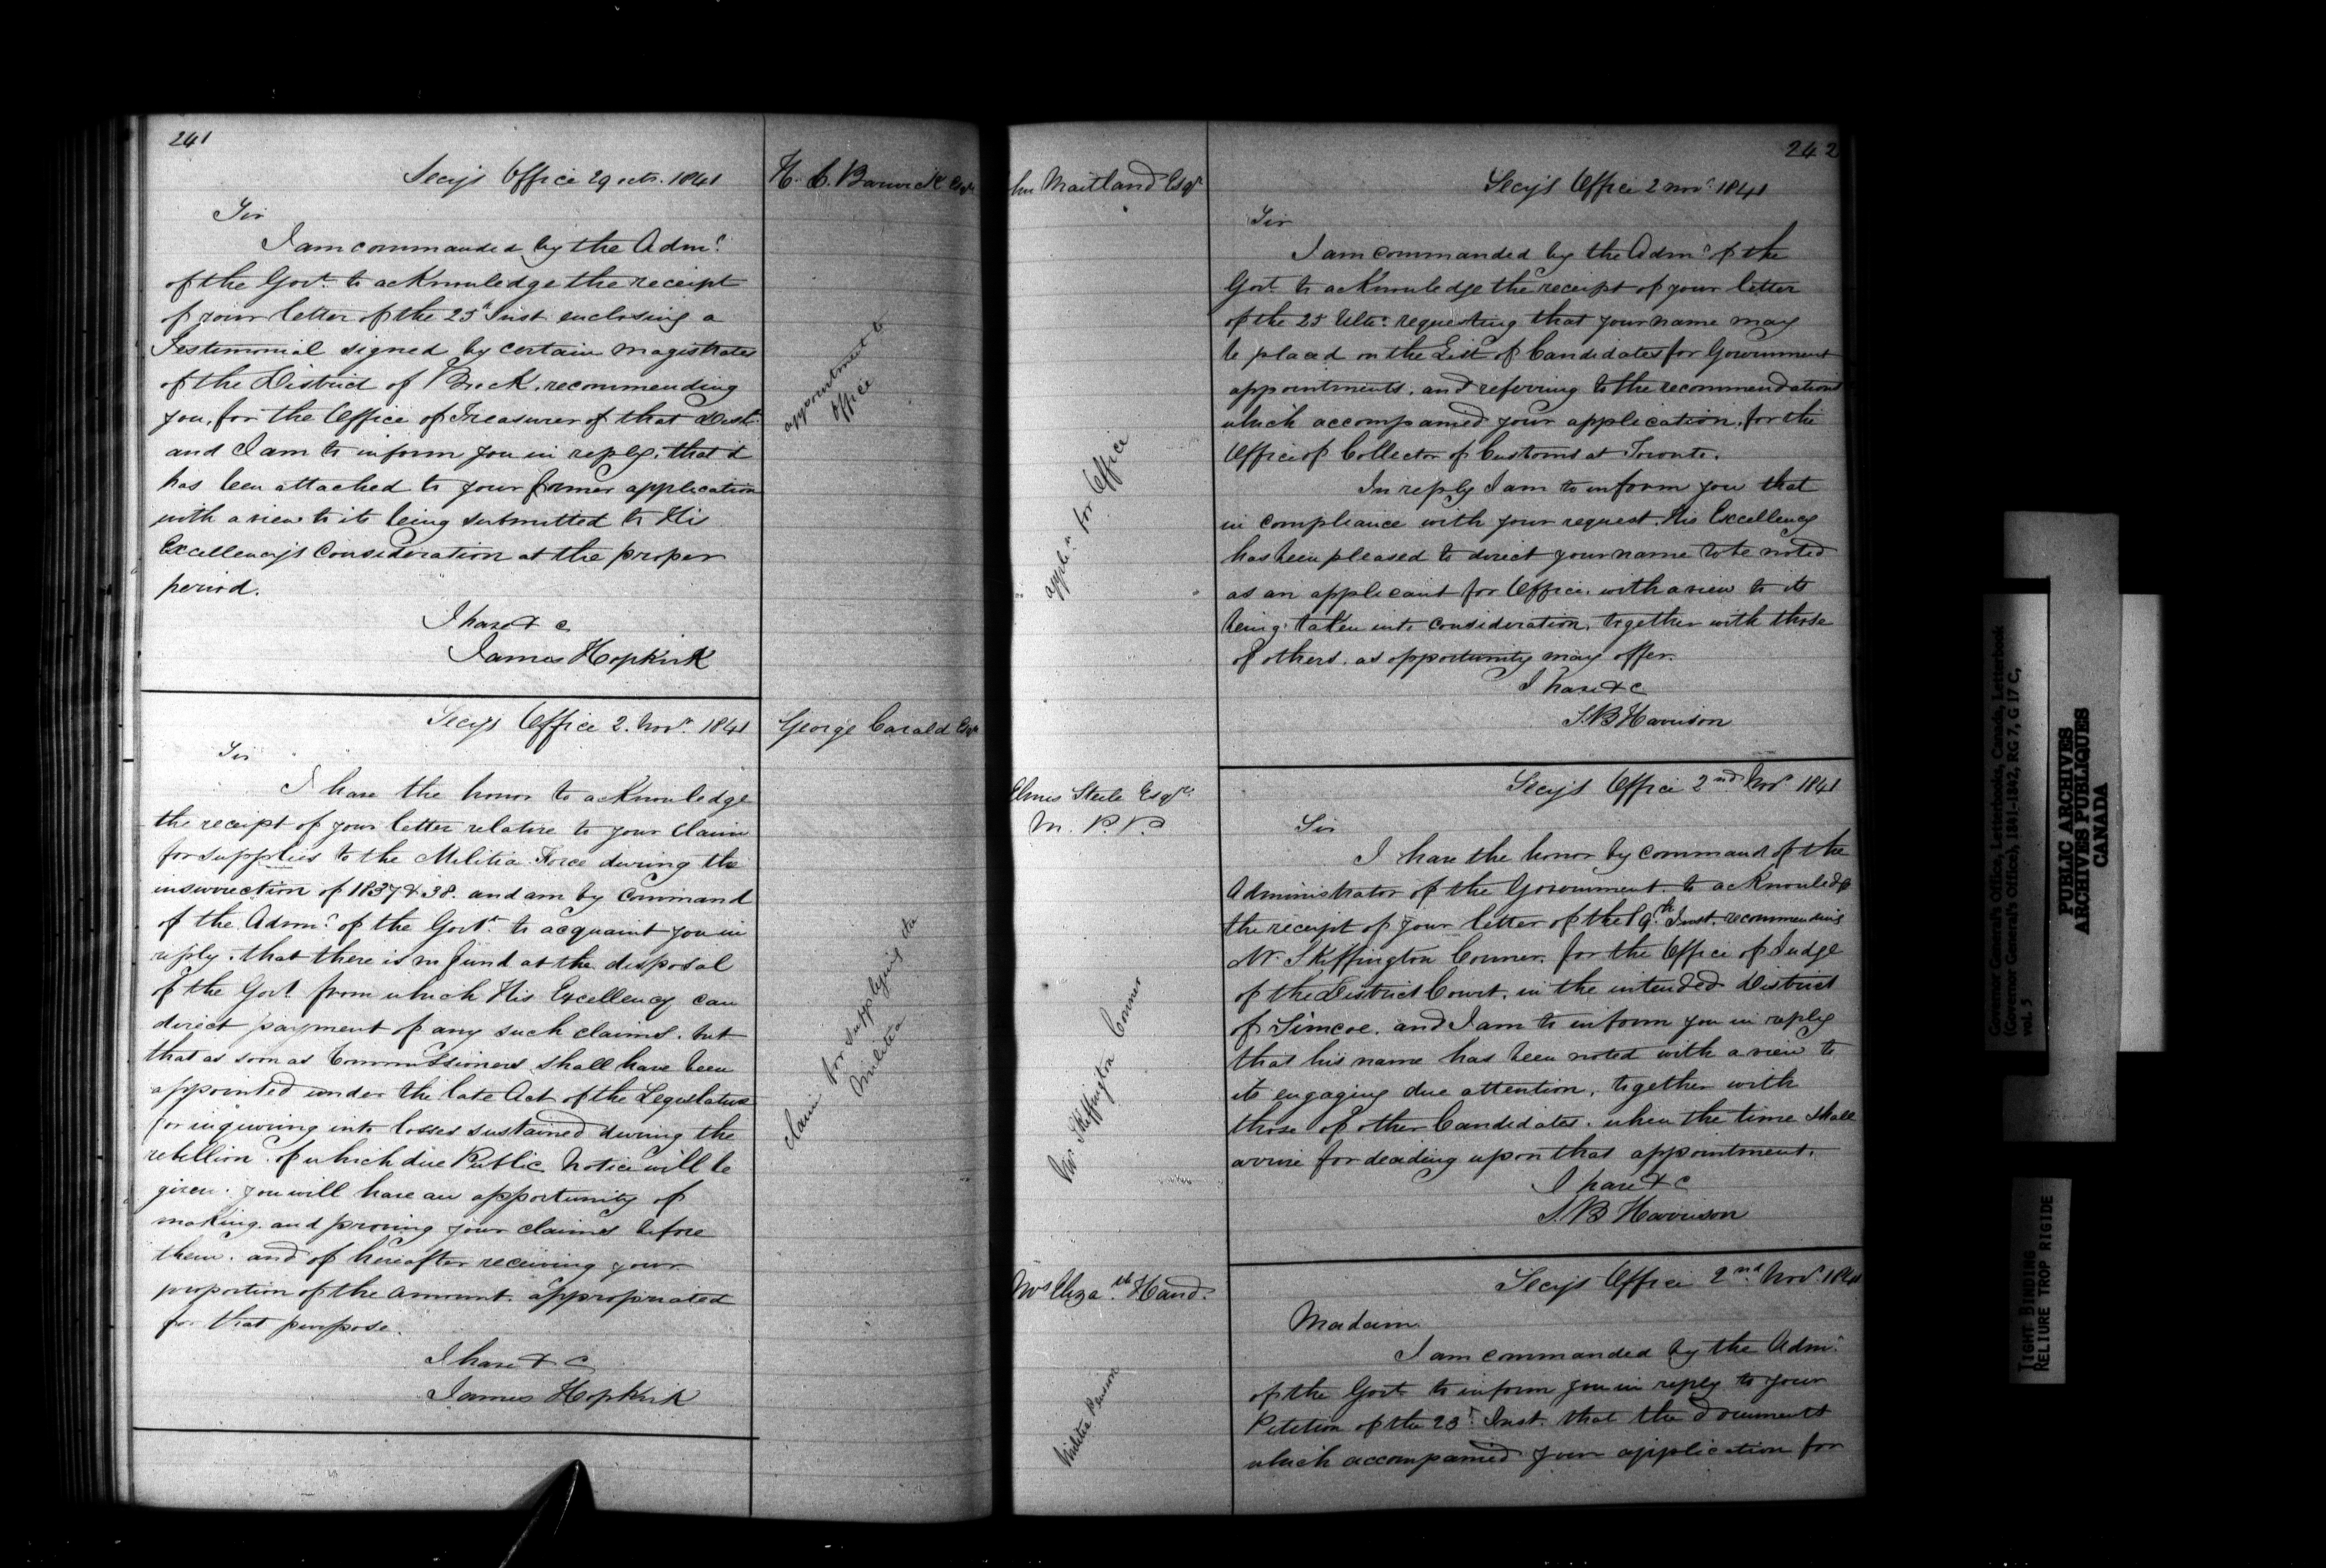 241
Secy's Office 29 octr. 1841
H. C. Barwick Esqr
Sir
I am commanded by the Admr
of the Govt. to acKnowledge the receipt
of your letter of the 25t Inst. enclosing a
Testimonial signed by certain Magistrates
of the District of Brock, recommending
you, for the Office of Treasurer of that Dist.
and I am to inform you in reply, that it
has been attached to your former application
with a view to its being submitted to His
Excellency's Consideration at the proper
period.
I have & c
James Hopkirk
appointment to
office
Secys Office 2. Novr. 1841
George Carald Esqr
Sir
I have the honor to acKnowledge
the receipt of your letter relative to your Claim
for supplies to the Militia Force during the
insurrection of 1837 & 38. and am by Command
of the Admr. of the Govt. to acquaint you in
reply. that there is no fund at the disposal
of the Govt. from which His Excellency can
direct payment of any such claims. but
that as soon as Commissioners shall have been
appointed under the late Act of the Legislature
for inquiring into losses sustained during the
rebellion. of which due Public Notice will be
given. you will have an opportunity of
making. and proving your claims before
them. and of hereafter receiving your
proportion of the amount. appropriated
for that purpose.
I have & c
James Hopkirk
Claim for supplying the
Militia
242
Maitland Esqr
Secy's Office 2 Novr. 1841
Sir
I am commanded by the Admr. of the
Govt. to acKnowledge the receipt of your letter
of the 25 Ulto. requesting that your name may
be placed on the List of Candidates for Government
appointments. and referring to the recommendations
which accompanied your application, for the
Office of Collector of Customs at Toronto.
In reply I am to inform you that
in compliance with your request. His Excellency
has been pleased to direct your name to be noted
as an applicant for Office. with a view to its
being taken into consideration, together with those
of others. as opportunity may offer.
I have & c
S. B Harrison
appln. for Office
Secy's Office 2nd Novr 1841
Elmes Steele Esqre.
M. P. P.
Sir
I have the honor by command of the
Administrator of the Government. to acKnowledge
the receipt of your letter of the 19th Inst. recommending
Mr. SKeffington Connor. for the Office of Judge
of the District Court. in the intended District
of Simcoe. and I am to inform you in reply
that his name has been noted with a view to
its engaging due attention, together with
those of other Candidates. when the time shall
arrive for deciding upon that appointment.
I have & c
S. B Harrison
Mr Skeffington Connor
Secys Office 2nd Novr. 1841
Mrs Eliza.th Hand.
Madam
I am commanded by the Admr.
of the Govt. to inform you in reply to your
Petition of the 23d. Inst. that the documents
which accompanied your application for
Militia Pension
Governor General's Office, Letterbooks, Canada, Letterbook
(Governor General's Office), 1841-1842, RG 7, G 17 C,
vol. 5
PUBLIC ARCHIVES
ARCHIVES PUBLIQUES
CANADA
TIGHT BINDING
RELIURE TROP RIGIDE